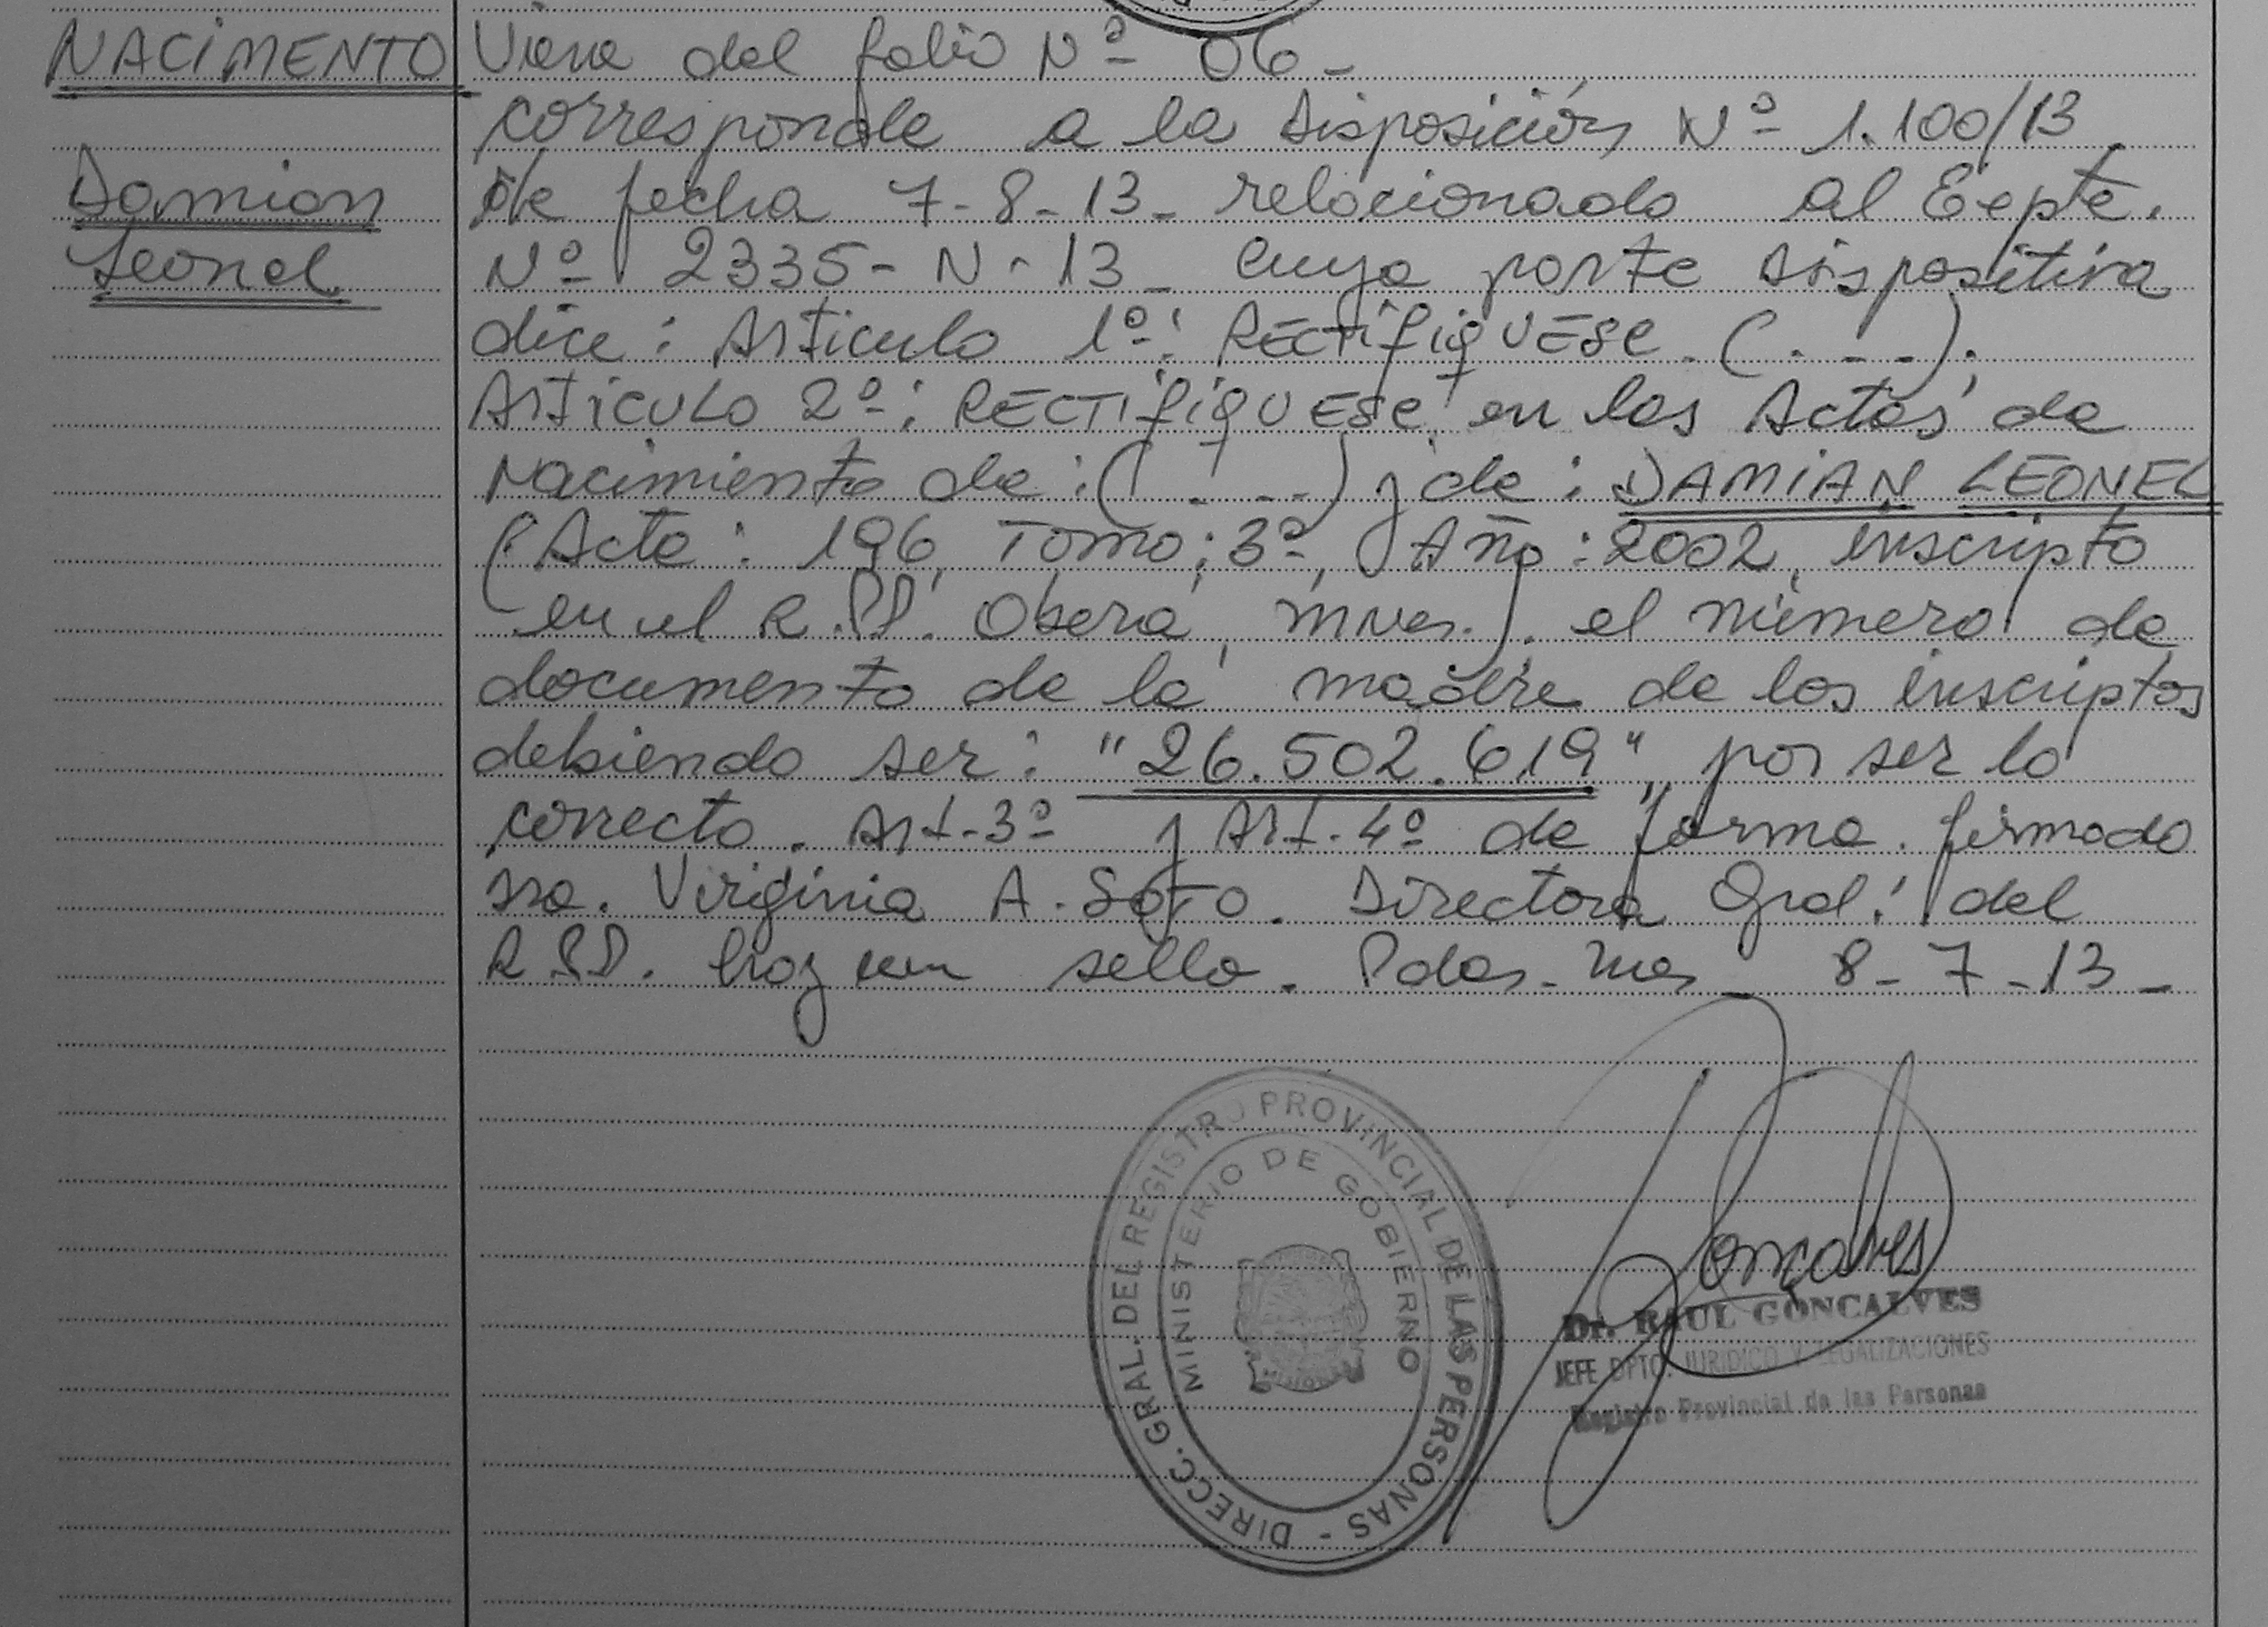 NACIMENTO
Damian
Leonel
Viene del folio Nº 06 -
corresponde a la Disposición Nº 1.100/13
de fecha 7-8-13- relacionado al Expte.
Nº 2335-N-13- cuya parte dispositiva
dice: Articulo 1º: RECTIFIQUESE. (. - -).
ARTICULO 2º: RECTIFIQUESE, en las Actas de
Nacimiento de: (. - --) y de: DAMIAN LEONEL
(Acta: 196, Tomo: 3º, Año: 2002, inscripto
en el R.P.P. Oberá, Mnes.). el número de
documento de la madre de los inscriptos
debiendo ser: "26.502.619", por ser lo
correcto. Art-3º y Art-4º de forma. firmado
Sra. Virginia A. SOTO. Directora Gral. del
R.P.P. hay un sello. Pdas. Mnes 8-7-13-
DIRECC. GRAL. DEL REGISTRO PROVINCIAL DE LAS PERSONAS -
MINISTERIO DE GOBIERNO
Goncalves
Dr. RAUL GONCALVES
JEFE DPTO. JURIDICO Y LEGALIZACIONES
Registro Provincial de las Personas